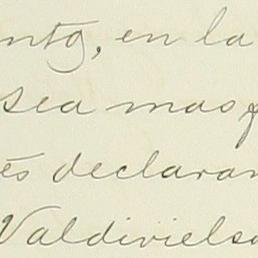 nto, en la
sea mas p
és declaran
Valdivielso